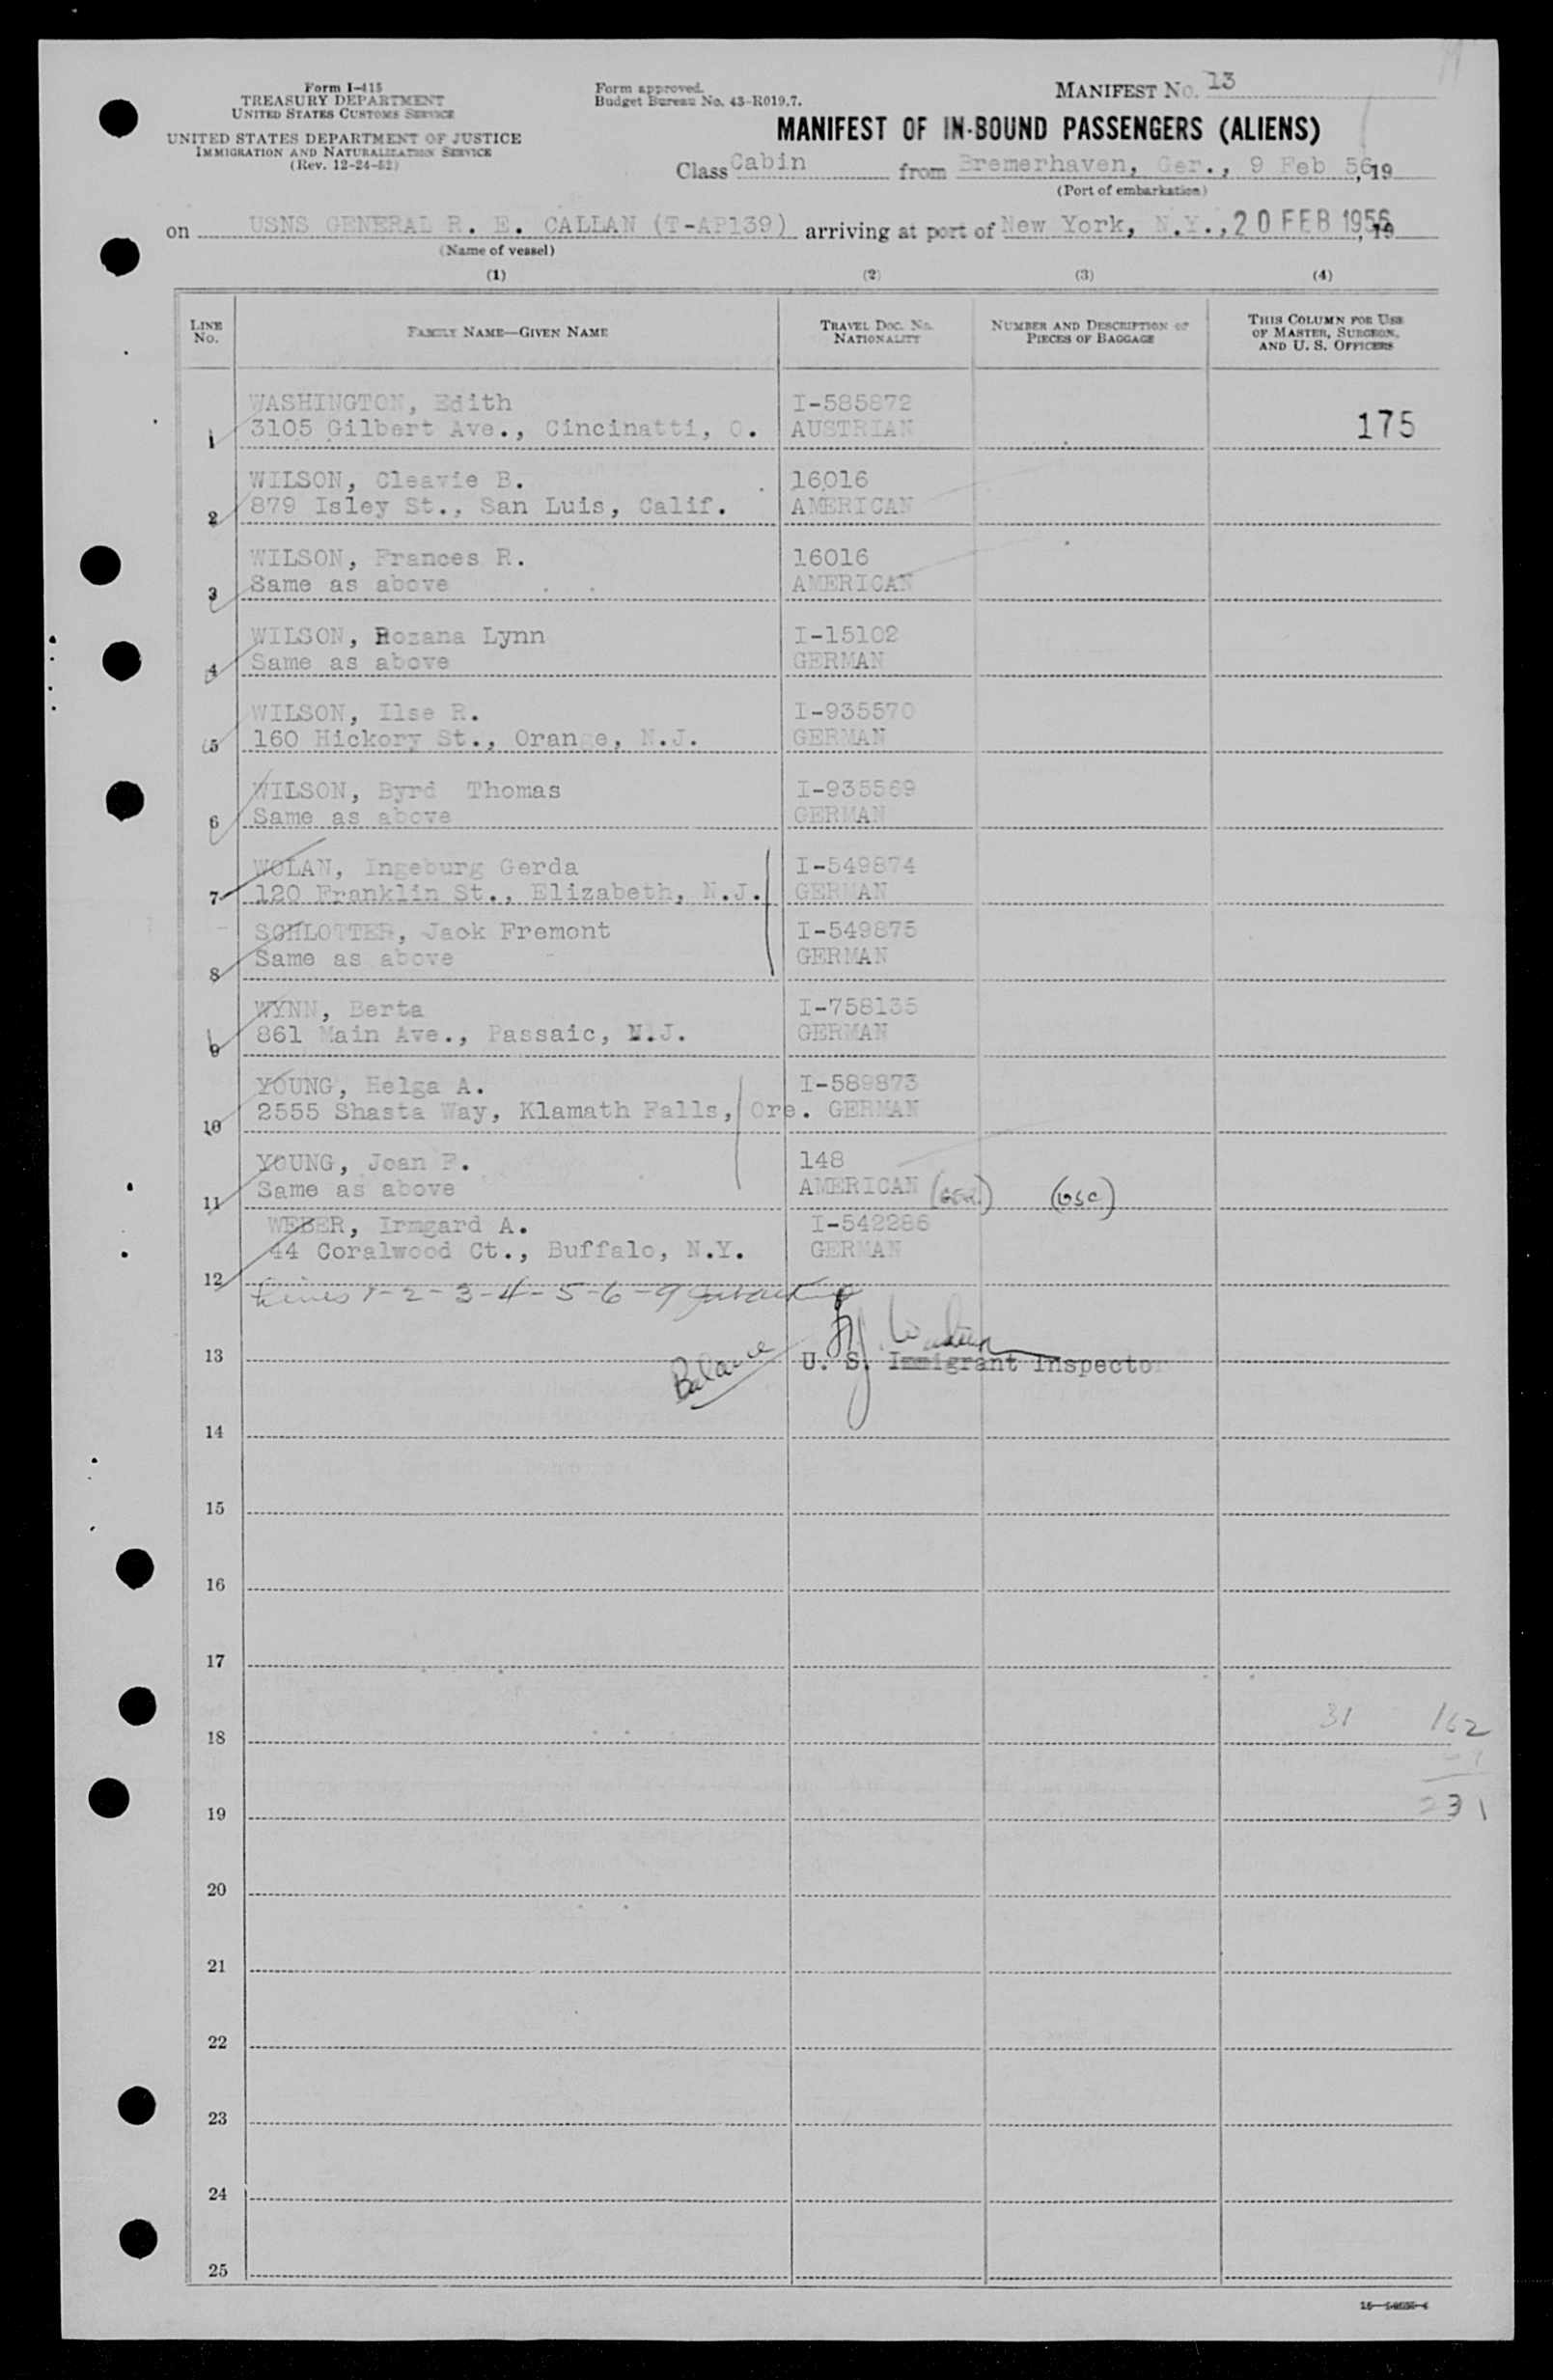 Form I-415
TREASURY DEPARTMENT
UNITED STATES CUSTOMS SERVICE
UNITED STATES DEPARTMENT OF JUSTICE
IMMIGRATION AND NATURALIZATION SERVICE
(Rev. 12-24-52)
Form approved.
Budget Bureau No. 43-R019.7.
MANIFEST No. 13
MANIFEST OF IN-BOUND PASSENGERS (ALIENS)
Class Cabin from Bremerhaven, Ger., 9 Feb 56, 19
(Port of embarkation)
on USNS GENERAL R. E. CALLAN (T-AP139) arriving at port of New York, N.Y., 20 FEB 1956, 19
(Name of vessel)
(1) (2) (3) (4)
LINE No. FAMILY NAME—GIVEN NAME TRAVEL DOC. No. NATIONALITY NUMBER AND DESCRIPTION OF PIECES OF BAGGAGE THIS COLUMN FOR USE OF MASTER, SURGEON, AND U. S. OFFICERS
WASHINGTON, Edith I-585872
1 3105 Gilbert Ave., Cincinatti, O. AUSTRIAN 175
WILSON, Cleavie B. 16016
2 879 Isley St., San Luis, Calif. AMERICAN
WILSON, Frances R. 16016
3 Same as above AMERICAN
WILSON, Rozana Lynn I-15102
4 Same as above GERMAN
WILSON, Ilse R. I-935570
5 160 Hickory St., Orange, N.J. GERMAN
WILSON, Byrd Thomas I-935569
6 Same as above GERMAN
WOLAN, Ingeburg Gerda I-549874
7 120 Franklin St., Elizabeth, N.J. GERMAN
SCHLOTTER, Jack Fremont I-549875
8 Same as above GERMAN
WYNN, Berta I-758135
9 861 Main Ave., Passaic, N.J. GERMAN
YOUNG, Helga A. I-589873
10 2555 Shasta Way, Klamath Falls, Ore. GERMAN
YOUNG, Joan F. 148
11 Same as above AMERICAN (GER.) (USC)
WEBER, Irmgard A. I-542286
44 Coralwood Ct., Buffalo, N.Y. GERMAN
12
Lines 1-2-3-4-5-6-9
13 Balance U. S. Immigrant Inspector
14
15
16
17
31 162
18
19 231
20
21
22
23
24
25